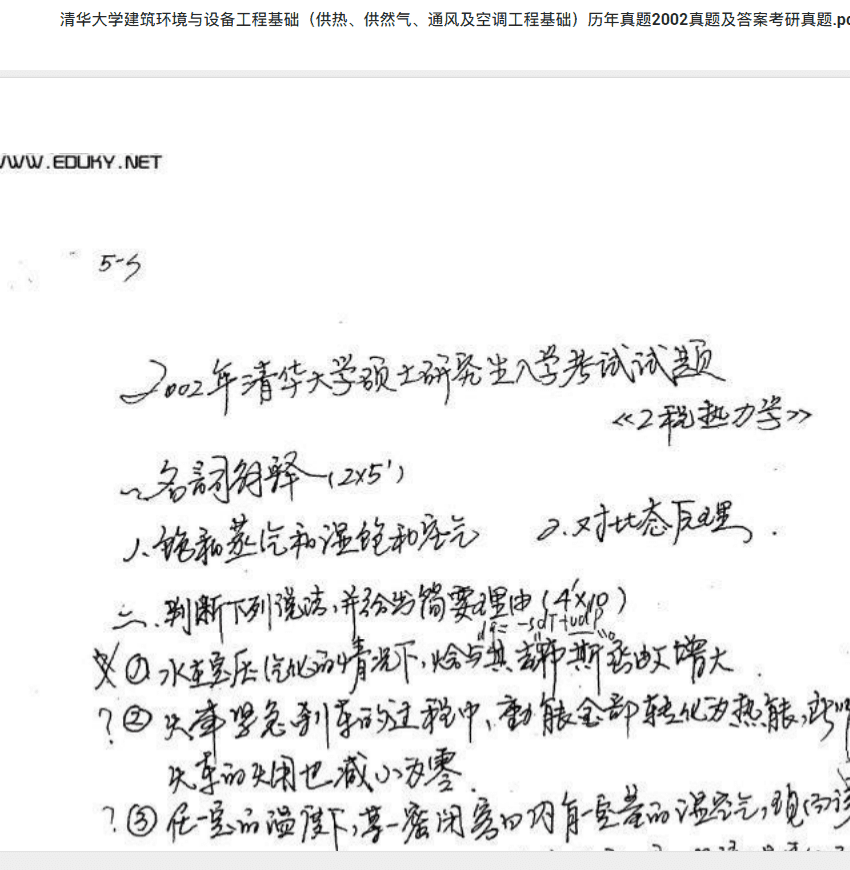 清华大学建筑环境与设备工程基础（供热、供然气、通风及空调工程基础）历年真题2002真题及答案考研真题.pc
WWW.EDUKY.NET
5-5
2002年清华大学硕士研究生入学考试试题
《工程热力学》
一、名詞解释（2x5'）
1、饱和蒸汽和湿饱和蒸气 2、对比态原理.
二、判断下列说法,并给出简要理由（4'x10）
dg= -sdT+vdp
① 水在定压汽化的情况下,焓与其吉布斯函数增大.
? ② 火車紧急刹车的过程中、動能全部转化为热能,此时
火车的㶲也减小为零.
? ③ 在一定的温度下,某一密闭房间内有一定量的湿空气,现